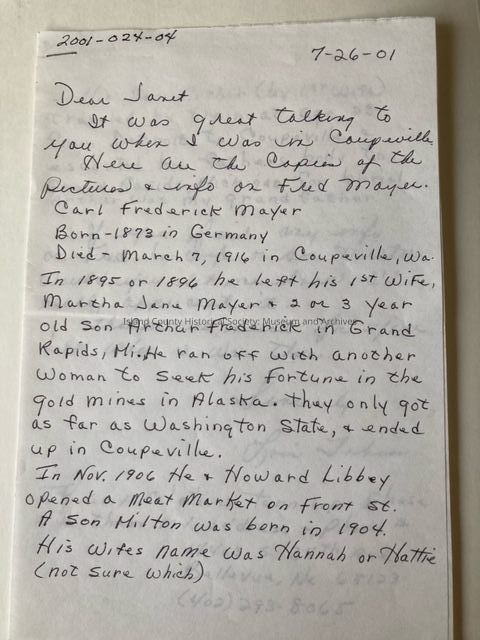 2001-024-04
7-26-01
Dear Janet
It was great talking to
you when I was in Coupeville
Here are the Copies of the
Pictures & info on Fred Mayer.
Carl Frederick Mayer
Born-1873 in Germany
Died- March 7, 1916 in Coupeville, Wa.
In 1895 or 1896 he left his 1st Wife,
Martha Jane Mayer & 2 or 3 year
old son Arthur Frederick in Grand
Island County Historical Society: Museum and Archives
Rapids, Mi. He ran off with another
Woman to seek his fortune in the
gold mines in Alaska. They only got
as far as Washington State, & ended
up in Coupeville.
In Nov. 1906 He & Howard Libbey
opened a Meat Market on Front St.
A Son Milton was born in 1904.
His Wifes name was Hannah or Hattie
(not sure which)
68123
(402) 293-8065